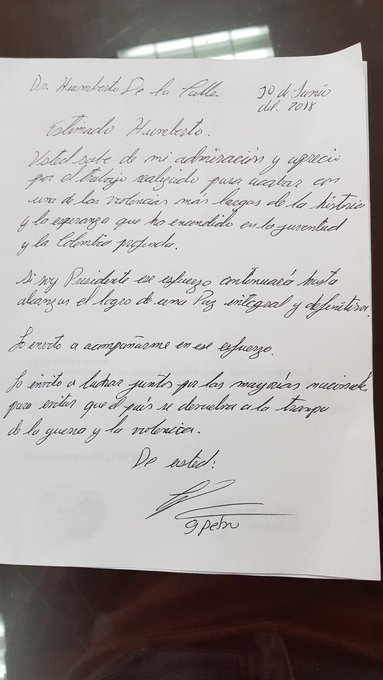 Dr. Humberto De la Calle. 10 de Junio
del. 2018
Estimado Humberto.
Usted sabe de mi admiración y aprecio
por el trabajo realizado para acabar con
una de las violencias más largas de la historia
y la esperanza que ha encendido en la juventud
y la Colombia profunda.
Si soy Presidente ese esfuerzo continuará hasta
alcanzar el logro de una Paz integral y definitiva.
Lo invito a acompañarme en ese esfuerzo.
Lo invito a luchar juntos por las mayorías nacionales
para evitar que el país se devuelva a la trampa
de la guerra y la violencia.
De usted:
g petro